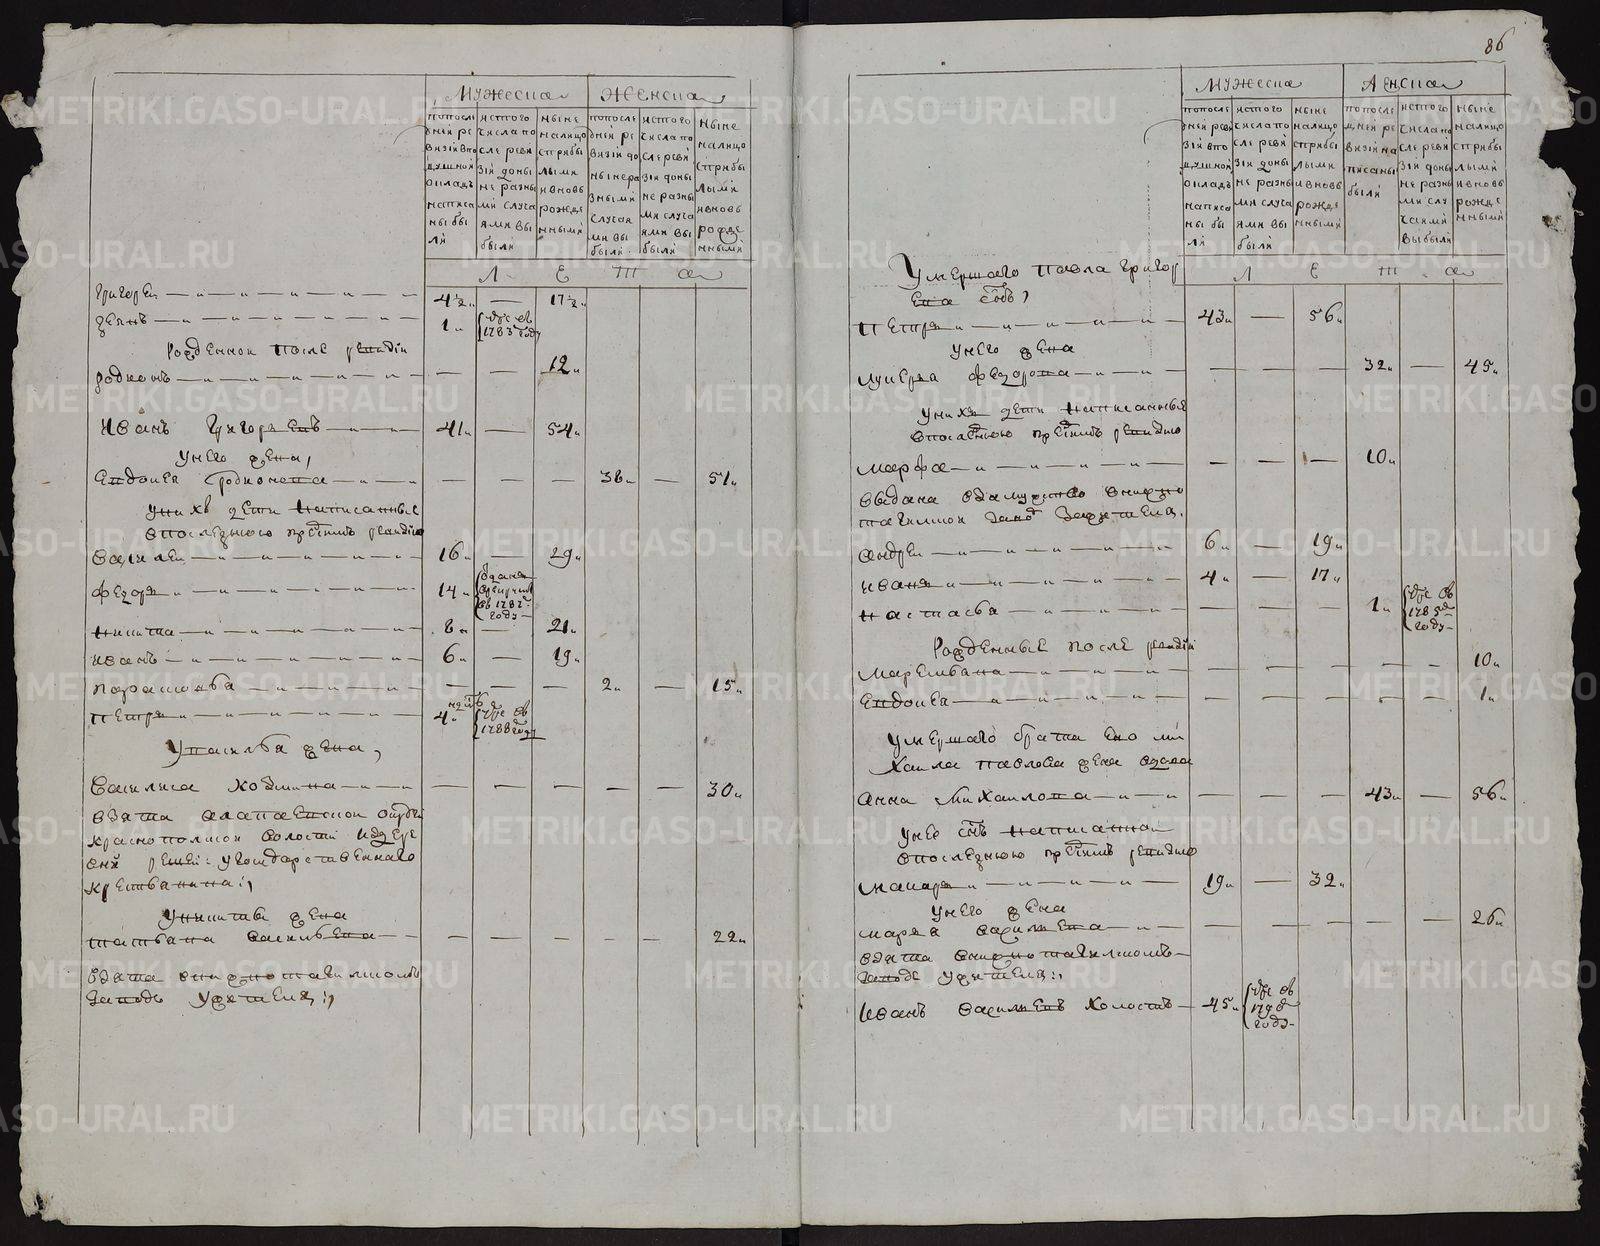 86
Мужеска
Женска
попосле
дней ре
визiи впо
душной
окладъ
написа
ны бы
ли
изтого
числа по
сле реви
зiи доны
не разны
ми случа
ями вы
были
ныне
налицо
сприбы
лыми
ивновь
рожде
нными
попосле
дней ре
визiи до
ны нера
зными
случая
ми вы
были
изтого
числа по
сле реви
зiи доны
не разны
ми случа
ями вы
были
ныне
налицо
сприбы
лыми
ивновь
рожде
нными
Л е т а
Григореи 4½ — 17½
Зенъ 1 {умре въ 1783 году
Рожденной после ревизiи
Родионъ — — 12
Иванъ Григорьевъ 41 — 54
Унего жена,
Евдокея Родионова — — — 38 — 51
Унихъ дети написанные
впоследнюю пред симъ ревизию
Василеи 16 — 29
Федоръ 14 {отданъ врекруты въ 1787 году
Никита 8 — 21
Иванъ 6 — 19
Парасковья — — — 2 — 15
Петръ 4 недель {умре въ 1788 году
Увасилья жена,
Василиса Козмина — — — — — 30
взята Алапаевской округи
Краснопольской волости издере
вни угосударственнаго
крестьянина:,
Уникиты жена
Татьяна Васильева — — — — — 22
взята внижнотагильскомъ
заводе ужителя:,
Мужеска
Женска
попосле
дней реви
зiи впо
душной
окладъ
написа
ны бы
ли
изтого
числа по
сле реви
зiи доны
не разны
ми случа
ями вы
были
ныне
налицо
сприбы
лыми
ивновь
рожде
нными
попосле
дней ре
визiи на
писаны
были
изтого
числа по
сле реви
зiи доны
не разны
ми слу
чаями
выбыли
ныне
налицо
сприбы
лыми
ивновь
рожде
нными
Л е т а
Умершаго Павла Григор
ева сынъ,
Петръ 43 — 56
Унего жена
Лукерья Федорова — — — 32 — 45
Унихъ дети написанные
впоследнюю пред симъ ревизию
Марфа — — — 10
выдана взамужство внижно
тагильской завод зажителя.
Андреи 6 — 19
Иванъ 4 — 17
Настасья — — — 1 {умре въ 1785 году
Рожденные после ревизiи
Маремьяна — — — — — 10
Евдокея — — — — — 1
Умершаго брата ево Ми
хаила Павлова жена вдова
Анна Михаилова — — — 43 — 56
Унее сынъ написанной
впоследнюю пред симъ ревизию
Макаръ 19 — 32
Унего жена
Марья Васильева — — — — — 26
взята внижнотагильскомъ
заводе ужителя:,
Иванъ Васильевъ холостъ 45 {умре въ
году
METRIKI.GASO-URAL.RU